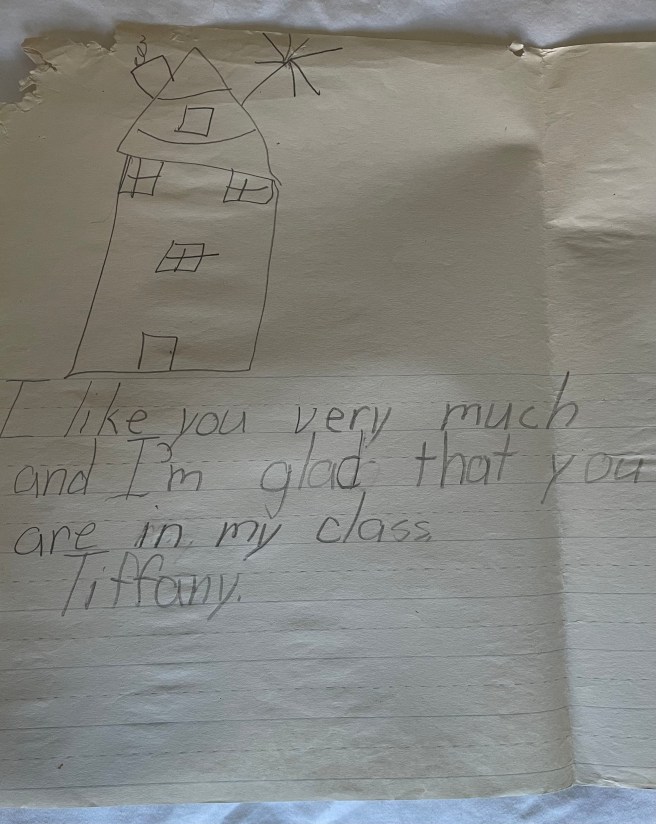 I like you very much
and I'm glad that you
are in my class
Tiffany.